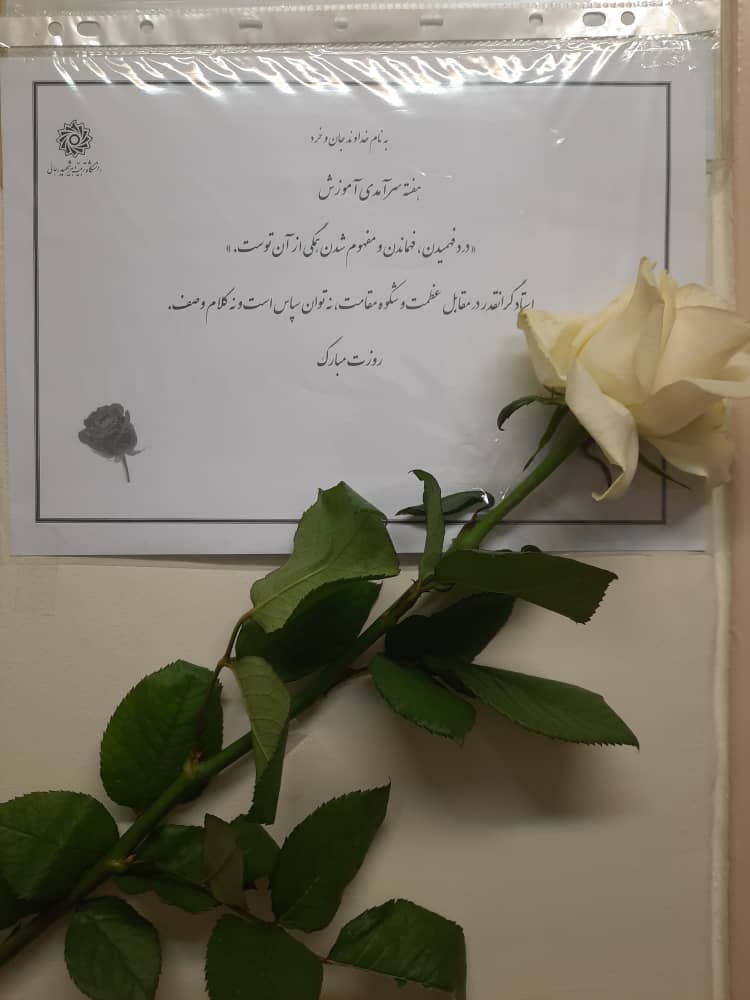 دانشگاه تربیت دبیر شهید رجائی
به نام خداوند جان و خرد
هفته سرآمدی آموزش
«درد فهمیدن، فهماندن و مفهوم شدن همگی از آن توست.»
استاد گرانقدر در مقابل عظمت و شکوه مقامت، نه توان سپاس است و نه کلام وصف.
روزت مبارک